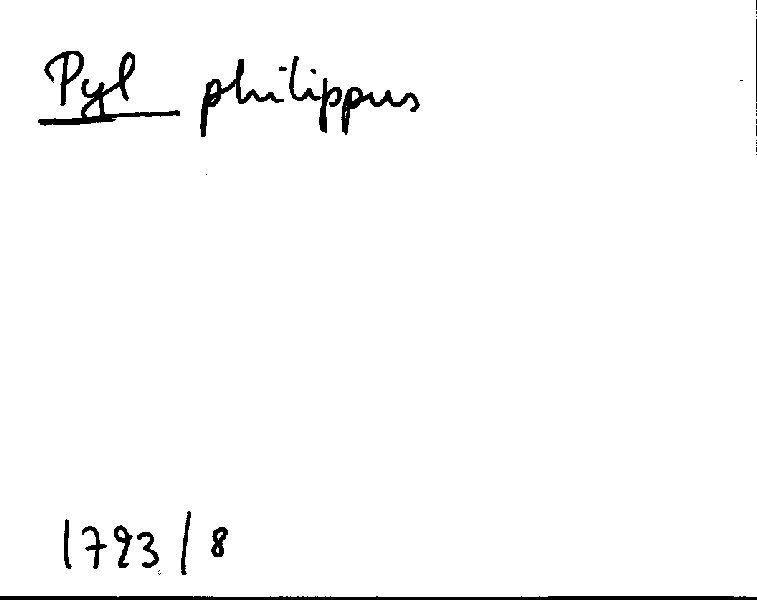 Pyl philippus
1793/8